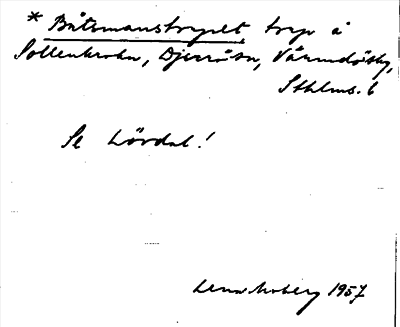 * Båtsmanstorpet torp å
Sollenkroka, Djurö sn, Värmdö sky,
Sthlms. l
Se Lördal!
Lena Moberg 1957